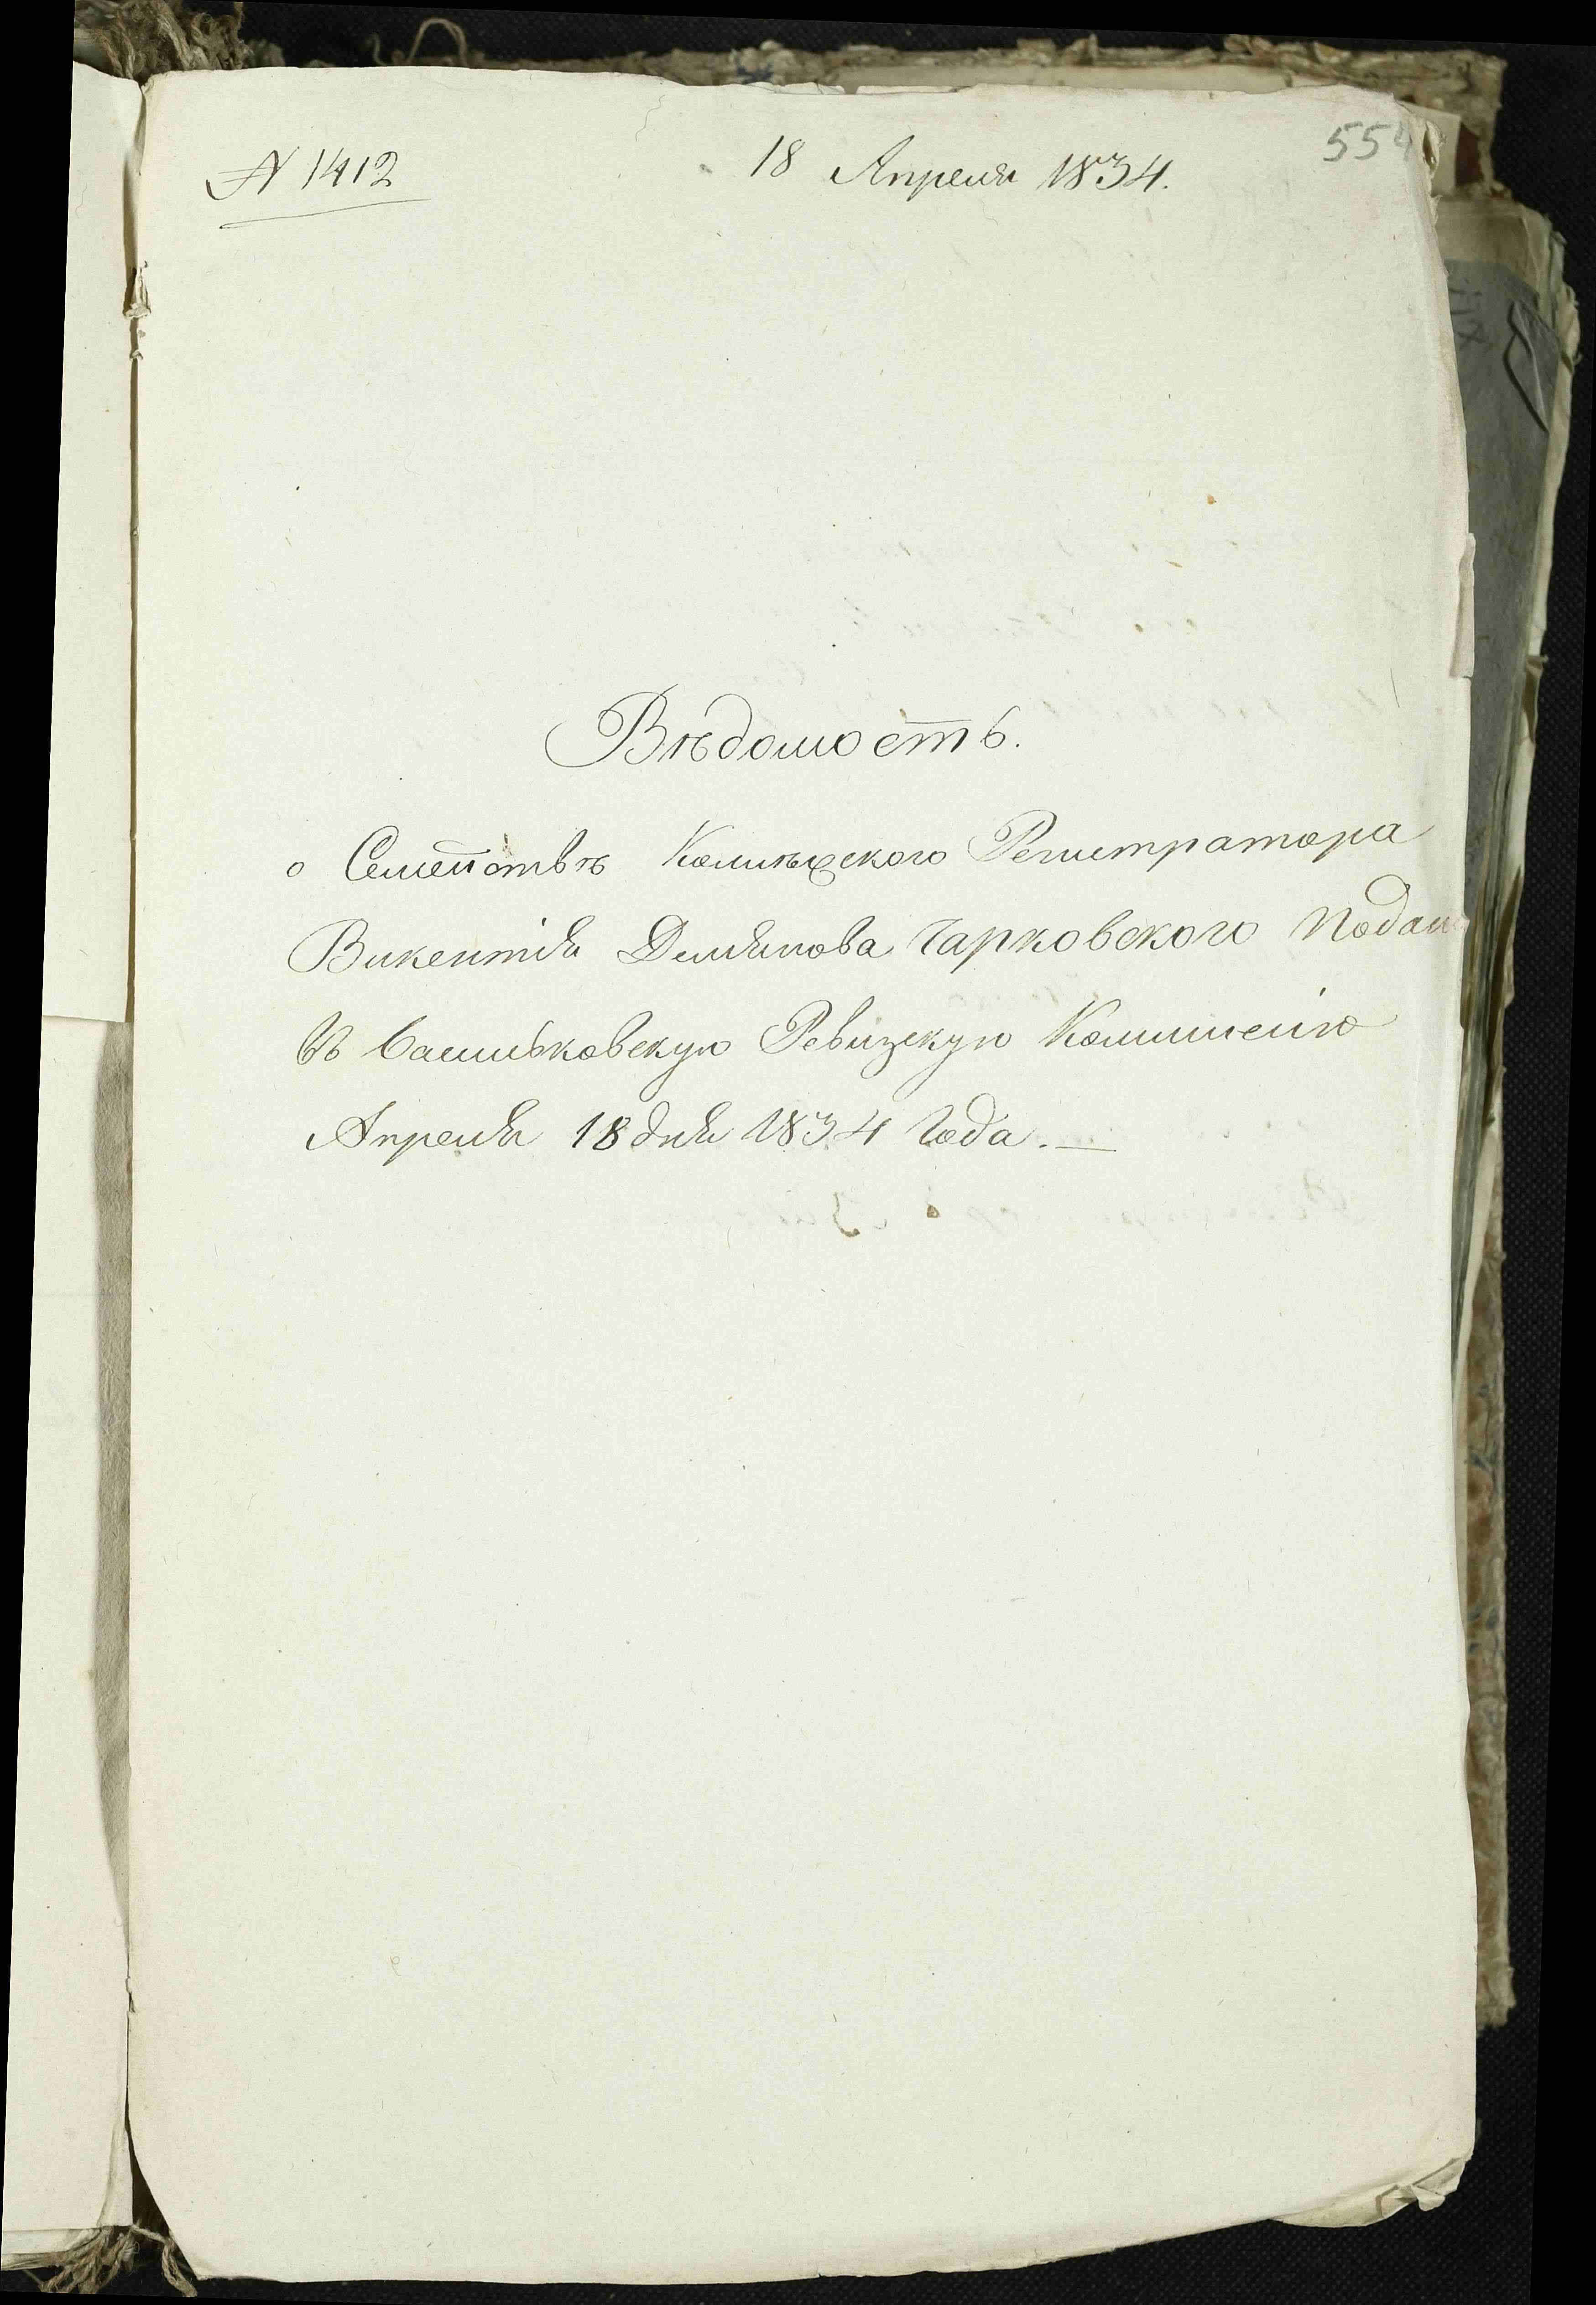 № 1412
18 Апреля 1834.
554
Вѣдомость.
о Семействѣ Колиѣжского Регистратора
Викентія Демянова Чарковского Подан
въ Васильковскую Ревизскую Коммисію
Апреля 18 дня 1834 Года. —